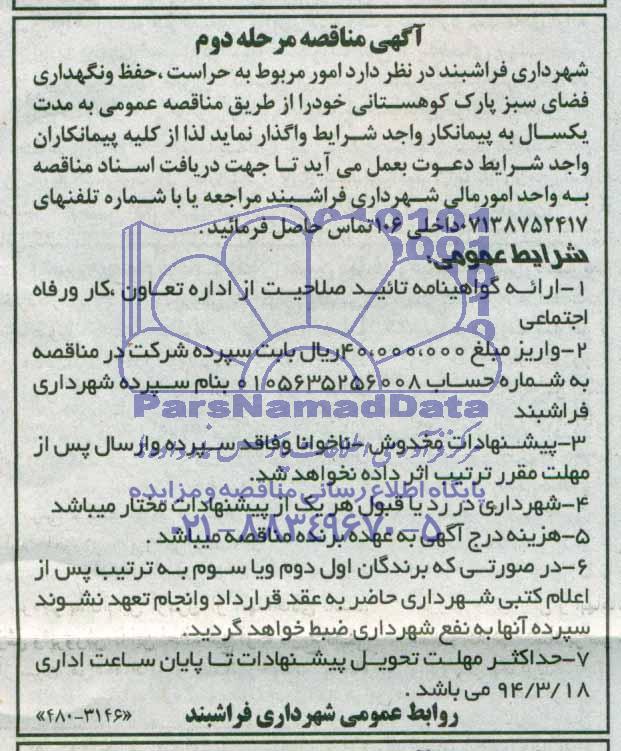 آگهی مناقصه مرحله دوم
شهرداری فراشبند در نظر دارد امور مربوط به حراست ،حفظ ونگهداری
فضای سبز پارک کوهستانی خودرا از طریق مناقصه عمومی به مدت
یکسال به پیمانکار واجد شرایط واگذار نماید لذا از کلیه پیمانکاران
واجد شرایط دعوت بعمل می آید تا جهت دریافت اسناد مناقصه
به واحد امورمالی شهرداری فراشبند مراجعه یا با شماره تلفنهای
۰۷۱۳۸۷۵۲۴۱۷داخلی ۱۰۶تماس حاصل فرمائید.
شرایط عمومی:
۱-ارائه گواهینامه تائید صلاحیت از اداره تعاون ،کار ورفاه
اجتماعی
۲-واریز مبلغ ۴۰،۰۰۰،۰۰۰ریال بابت سپرده شرکت در مناقصه
به شماره حساب ۰۱۰۵۶۳۵۲۵۶۰۰۸ بنام سپرده شهرداری
فراشبند
ParsNamadData
۳-پیشنهادات مخدوش -ناخوانا وفاقد سپرده وارسال پس از
مهلت مقرر ترتیب اثر داده نخواهد شد.
پایگاه اطلاع رسانی مناقصه و مزایده
۴-شهرداری در رد یا قبول هر یک از پیشنهادات مختار میباشد
۰۲۱-۸۸۳۴۹۶۷۰-۵
۵-هزینه درج آگهی به عهده برنده مناقصه میباشد .
۶-در صورتی که برندگان اول دوم ویا سوم به ترتیب پس از
اعلام کتبی شهرداری حاضر به عقد قرارداد وانجام تعهد نشوند
سپرده آنها به نفع شهرداری ضبط خواهد گردید.
۷-حداکثر مهلت تحویل پیشنهادات تا پایان ساعت اداری
۹۴/۳/۱۸ می باشد .
روابط عمومی شهرداری فراشبند
«۴۸۰-۳۱۴۶»